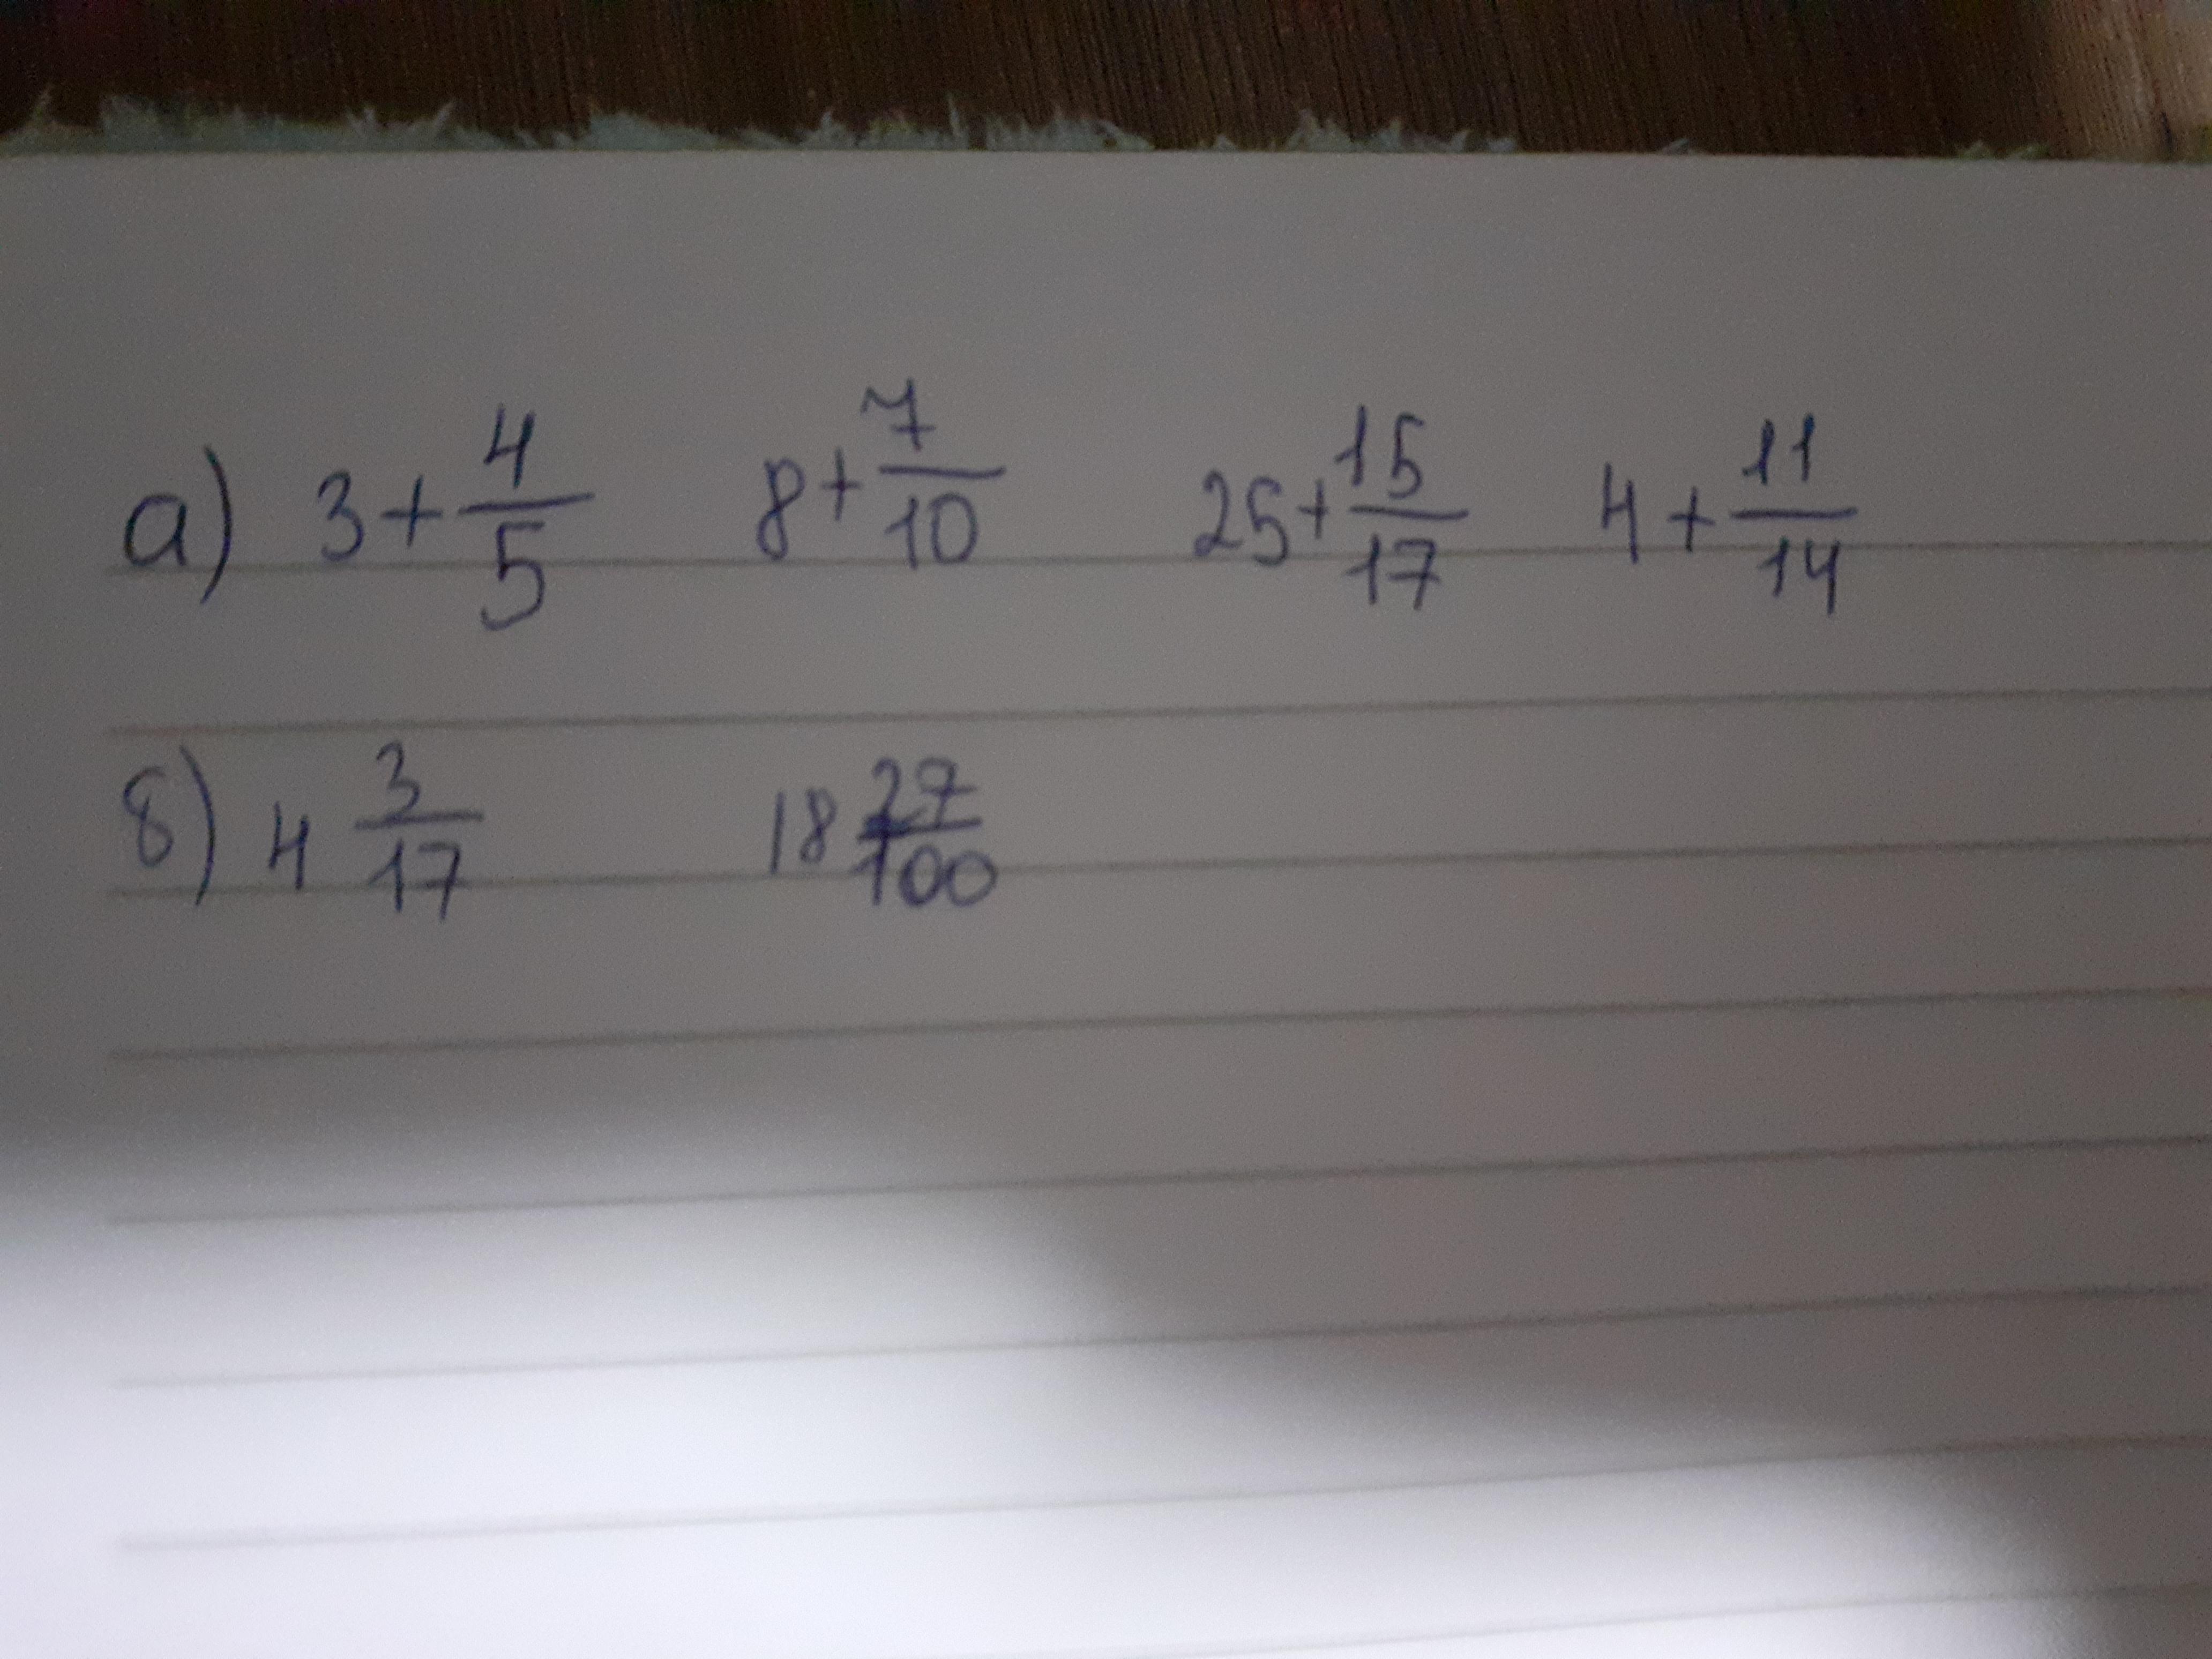 а) 3+4/5 8+7/10 25+15/17 4+11/14
б) 4 3/17 18 27/100